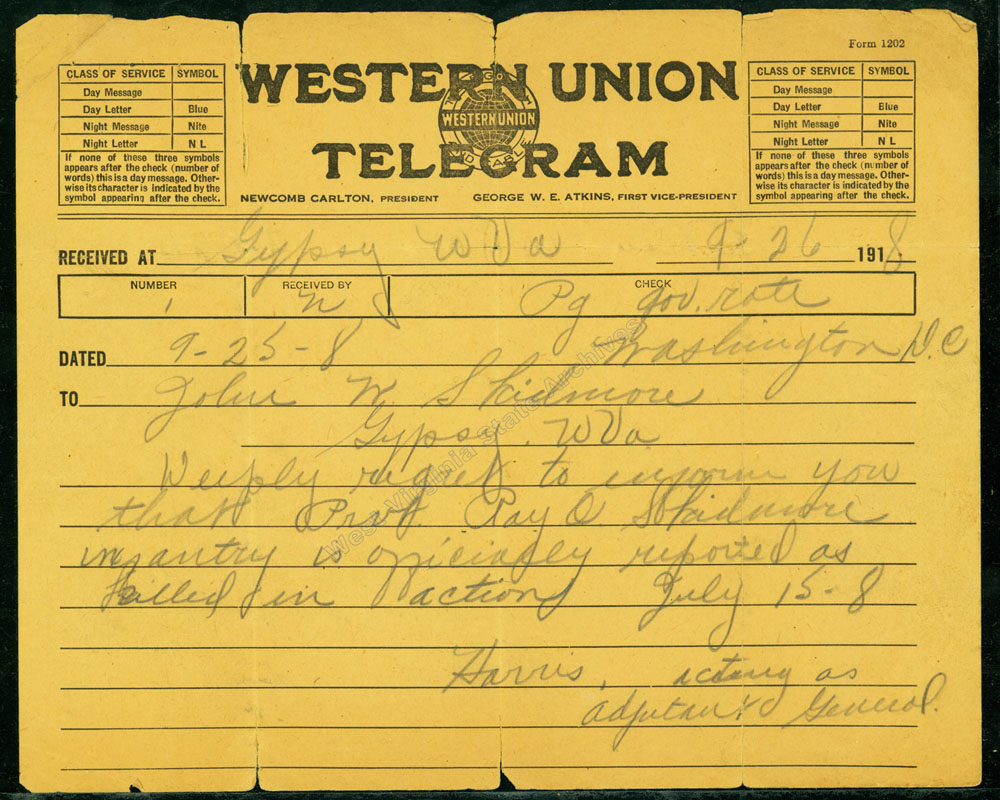 Form 1202
CLASS OF SERVICE SYMBOL
Day Message
Day Letter Blue
Night Message Nite
Night Letter N L
If none of these three symbols
appears after the check (number of
words) this is a day message. Other-
wise its character is indicated by the
symbol appearing after the check.
WESTERN UNION
WESTERN UNION
TELEGRAM
NEWCOMB CARLTON, PRESIDENT GEORGE W. E. ATKINS, FIRST VICE-PRESIDENT
CLASS OF SERVICE SYMBOL
Day Message
Day Letter Blue
Night Message Nite
Night Letter N L
If none of these three symbols
appears after the check (number of
words) this is a day message. Other-
wise its character is indicated by the
symbol appearing after the check.
RECEIVED AT Gypsy W Va 9-26 1918
NUMBER RECEIVED BY CHECK
1 Pg gov. rate
DATED 9-25-8 Washington D.C
TO John W Skidmore
Gypsy. W Va
Deeply regret to inform you
that Pravt Ray O Skidmore
infantry is officially reported as
killed in action July 15-8
Harris, acting as
adjutant General.
West Virginia State Archives